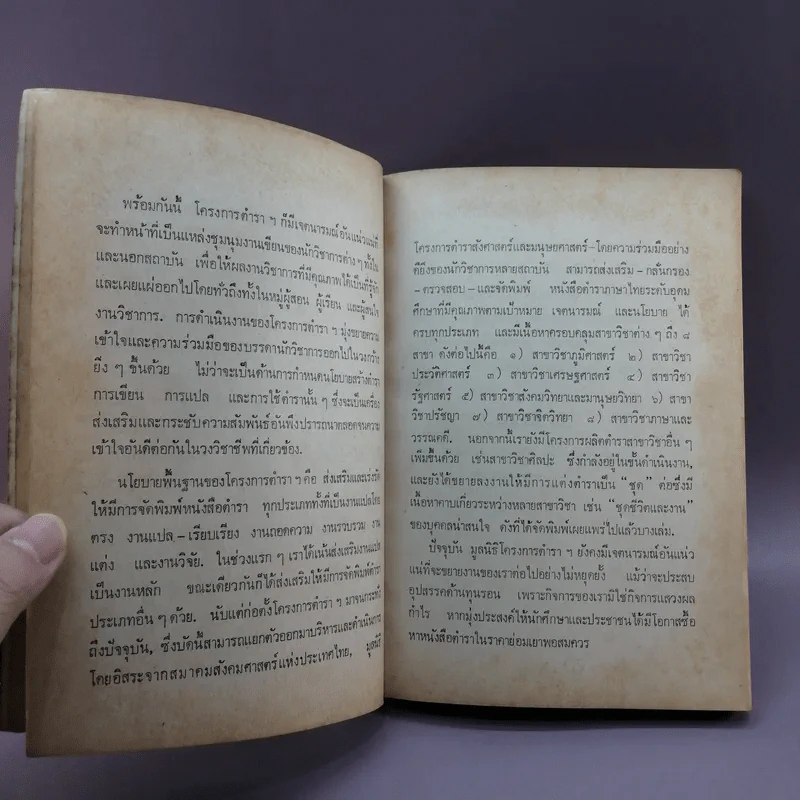 พร้อมกันนี้ โครงการตำรา ฯ ก็มีเจตนารมณ์อันแน่วแน่ที่
จะทำหน้าที่เป็นแหล่งชุมนุมงานเขียนของนักวิชาการต่าง ๆ ทั้งใน
และนอกสถาบัน เพื่อให้ผลงานวิชาการที่มีคุณภาพได้เป็นที่รู้จัก
และเผยแผ่ออกไปโดยทั่วถึงทั้งในหมู่ผู้สอน ผู้เรียน และผู้สนใจ
งานวิชาการ. การดำเนินงานของโครงการตำรา ฯ มุ่งขยายความ
เข้าใจและความร่วมมือของบรรดานักวิชาการออกไปในวงกว้าง
ยิ่ง ๆ ขึ้นด้วย ไม่ว่าจะเป็นด้านการกำหนดนโยบายสร้างตำรา
การเขียน การแปล และการใช้ตำรานั้น ๆ ซึ่งจะเป็นเครื่อง
ส่งเสริมและกระชับความสัมพันธ์อันพึงปรารถนาตลอดจนความ
เข้าใจอันดีต่อกันในวงวิชาชีพที่เกี่ยวข้อง.
นโยบายพื้นฐานของโครงการตำรา ฯ คือ ส่งเสริมและเร่งรัด
ให้มีการจัดพิมพ์หนังสือตำรา ทุกประเภททั้งที่เป็นงานแปลโดย
ตรง งานแปล-เรียบเรียง งานถอดความ งานรวบรวม งาน
แต่ง และงานวิจัย. ในช่วงแรก ๆ เราได้เน้นส่งเสริมงานแปล
เป็นงานหลัก ขณะเดียวกันก็ได้ส่งเสริมให้มีการจัดพิมพ์ตำรา
ประเภทอื่น ๆ ด้วย. นับแต่ก่อตั้งโครงการตำรา ฯ มาจนกระทั่ง
ถึงปัจจุบัน, ซึ่งบัดนี้สามารถแยกตัวออกมาบริหารและดำเนินการ
โดยอิสระจากสมาคมสังคมศาสตร์แห่งประเทศไทย, มูลนิธิ
โครงการตำราสังศาสตร์และมนุษยศาสตร์-โดยความร่วมมืออย่าง
ดียิ่งของนักวิชาการหลายสถาบัน สามารถส่งเสริม-กลั่นกรอง
-ตรวจสอบ-และจัดพิมพ์ หนังสือตำราภาษาไทยระดับอุดม
ศึกษาที่มีคุณภาพตามเป้าหมาย เจตนารมณ์ และนโยบาย ได้
ครบทุกประเภท และมีเนื้อหาครอบคลุมสาขาวิชาต่าง ๆ ถึง ๘
สาขา ดังต่อไปนี้คือ ๑) สาขาวิชาภูมิศาสตร์ ๒) สาขาวิชา
ประวัติศาสตร์ ๓) สาขาวิชาเศรษฐศาสตร์ ๔) สาขาวิชา
รัฐศาสตร์ ๕) สาขาวิชาสังคมวิทยาและมานุษยวิทยา ๖) สาขา
วิชาปรัชญา ๗) สาขาวิชาจิตวิทยา ๘) สาขาวิชาภาษาและ
วรรณคดี. นอกจากนี้เรายังมีโครงการผลิตตำราสาขาวิชาอื่น ๆ
เพิ่มขึ้นด้วย เช่นสาขาวิชาศิลปะ ซึ่งกำลังอยู่ในขั้นดำเนินงาน,
และยังได้ขยายลงงานให้มีการแต่งตำราเป็น “ชุด” ต่อซึ่งมี
เนื้อหาคาบเกี่ยวระหว่างหลายสาขาวิชา เช่น “ชุดชีวิตและงาน”
ของบุคคลน่าสนใจ ดังที่ได้จัดพิมพ์เผยแพร่ไปแล้วบางเล่ม.
ปัจจุบัน มูลนิธิโครงการตำรา ฯ ยังคงมีเจตนารมณ์อันแน่ว
แน่ที่จะขยายงานของเราต่อไปอย่างไม่หยุดยั้ง แม้ว่าจะประสบ
อุปสรรคด้านทุนรอน เพราะกิจการของเรามิใช่กิจการแสวงผล
กำไร หากมุ่งประสงค์ให้นักศึกษาและประชาชนได้มีโอกาสซื้อ
หาหนังสือตำราในราคาย่อมเยาพอสมควร